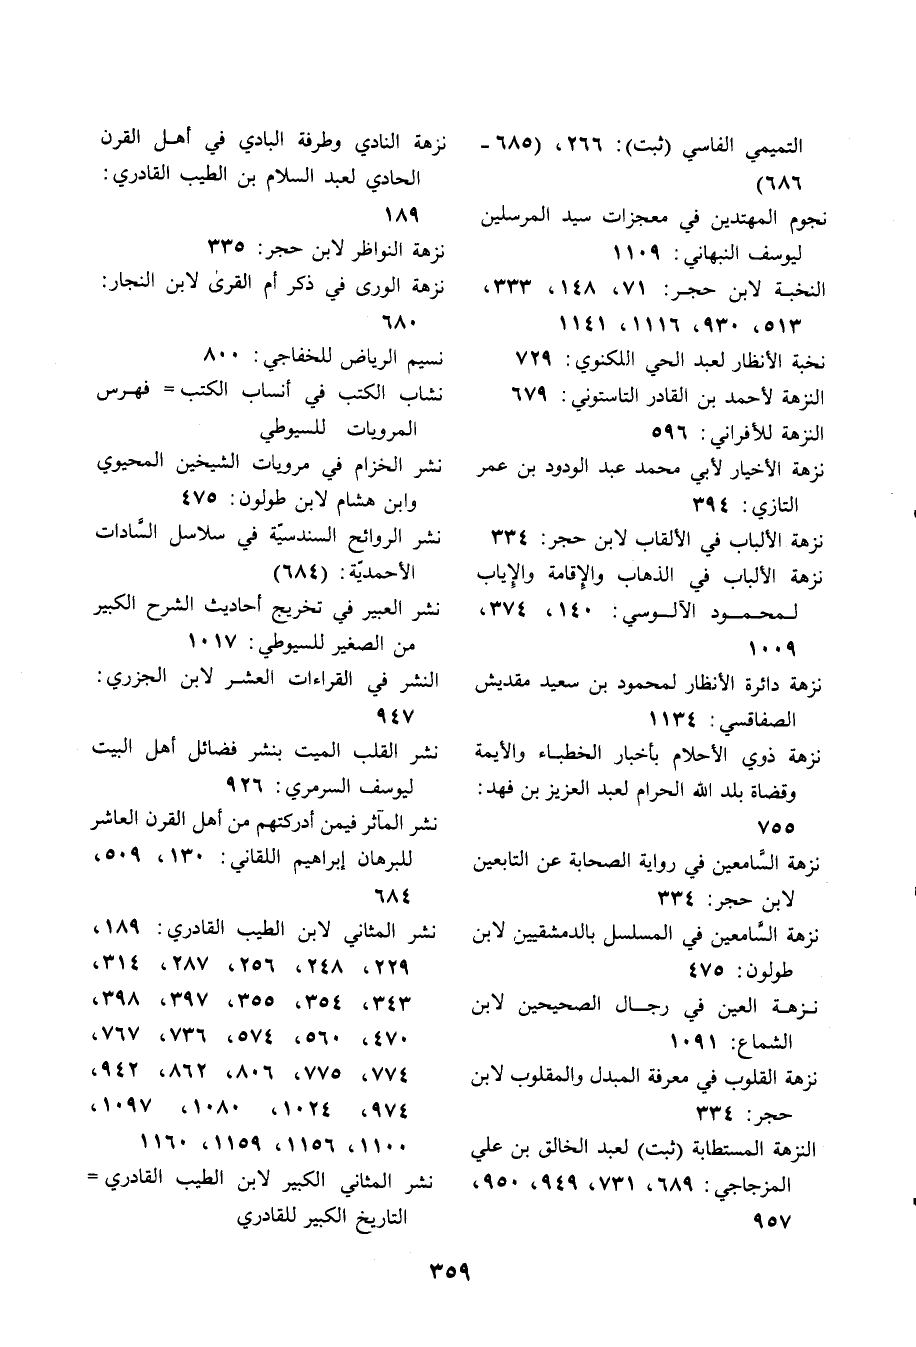 التميمي الفاسي (ثبت): ٢٦٦، (٦٨٥ -
٦٨٦)
نجوم المهتدين في معجزات سيد المرسلين
ليوسف النبهاني: ١١٠٩
النخبة لابن حجر: ٧١، ١٤٨، ٣٣٣،
٥١٣، ٩٣٠، ١١١٦، ١١٤١
نخبة الأنظار لعبد الحي اللكنوي: ٧٢٩
النزهة لأحمد بن القادر التاستوني: ٦٧٩
النزهة للأفراني: ٥٩٦
نزهة الأخيار لأبي محمد عبد الودود بن عمر
التازي: ٣٩٤
نزهة الألباب في الألقاب لابن حجر: ٣٣٤
نزهة الألباب في الذهاب والإقامة والإياب
لمحمود الآلوسي: ١٤٠، ٣٧٤،
١٠٠٩
نزهة دائرة الأنظار لمحمود بن سعيد مقديش
الصفاقسي: ١١٣٤
نزهة ذوي الأحلام بأخبار الخطباء والأيمة
وقضاة بلد الله الحرام لعبد العزيز بن فهد:
٧٥٥
نزهة السَّامعين في رواية الصحابة عن التابعين
لابن حجر: ٣٣٤
نزهة السَّامعين في المسلسل بالدمشقيين لابن
طولون: ٤٧٥
نزهة العين في رجال الصحيحين لابن
الشماع: ١٠٩١
نزهة القلوب في معرفة المبدل والمقلوب لابن
حجر: ٣٣٤
النزهة المستطابة (ثبت) لعبد الخالق بن علي
المزجاجي: ٦٨٩، ٧٣١، ٩٤٩، ٩٥٠،
٩٥٧
نزهة النادي وطرفة البادي في أهل القرن
الحادي لعبد السلام بن الطيب القادري:
١٨٩
نزهة النواظر لابن حجر: ٣٣٥
نزهة الورى في ذكر أم القرىٰ لابن النجار:
٦٨٠
نسيم الرياض للخفاجي: ٨٠٠
نشاب الكتب في أنساب الكتب = فهرس
المرويات للسيوطي
نشر الخزام في مرويات الشيخين المحيوي
وابن هشام لابن طولون: ٤٧٥
نشر الروائح السندسيّة في سلاسل السَّادات
الأحمديّة: (٦٨٤)
نشر العبير في تخريج أحاديث الشرح الكبير
من الصغير للسيوطي: ١٠١٧
النشر في القراءات العشر لابن الجزري:
٩٤٧
نشر القلب الميت بنشر فضائل أهل البيت
ليوسف السرمري: ٩٢٦
نشر المآثر فيمن أدركتهم من أهل القرن العاشر
للبرهان إبراهيم اللقاني: ١٣٠، ٥٠٩،
٦٨٤
نشر المثاني لابن الطيب القادري: ١٨٩،
٢٢٩، ٢٤٨، ٢٥٦، ٢٨٧، ٣١٤،
٣٤٣، ٣٥٤، ٣٥٥، ٣٩٧، ٣٩٨،
٤٧٠، ٥٦٠، ٥٧٤، ٧٣٦، ٧٦٧،
٧٧٤، ٧٧٥، ٨٠٦، ٨٦٢، ٩٤٢،
٩٧٤، ١٠٢٤، ١٠٨٠، ١٠٩٧،
١١٠٠، ١١٥٦، ١١٥٩، ١١٦٠
نشر المثاني الكبير لابن الطيب القادري =
التاريخ الكبير للقادري
٣٥٩